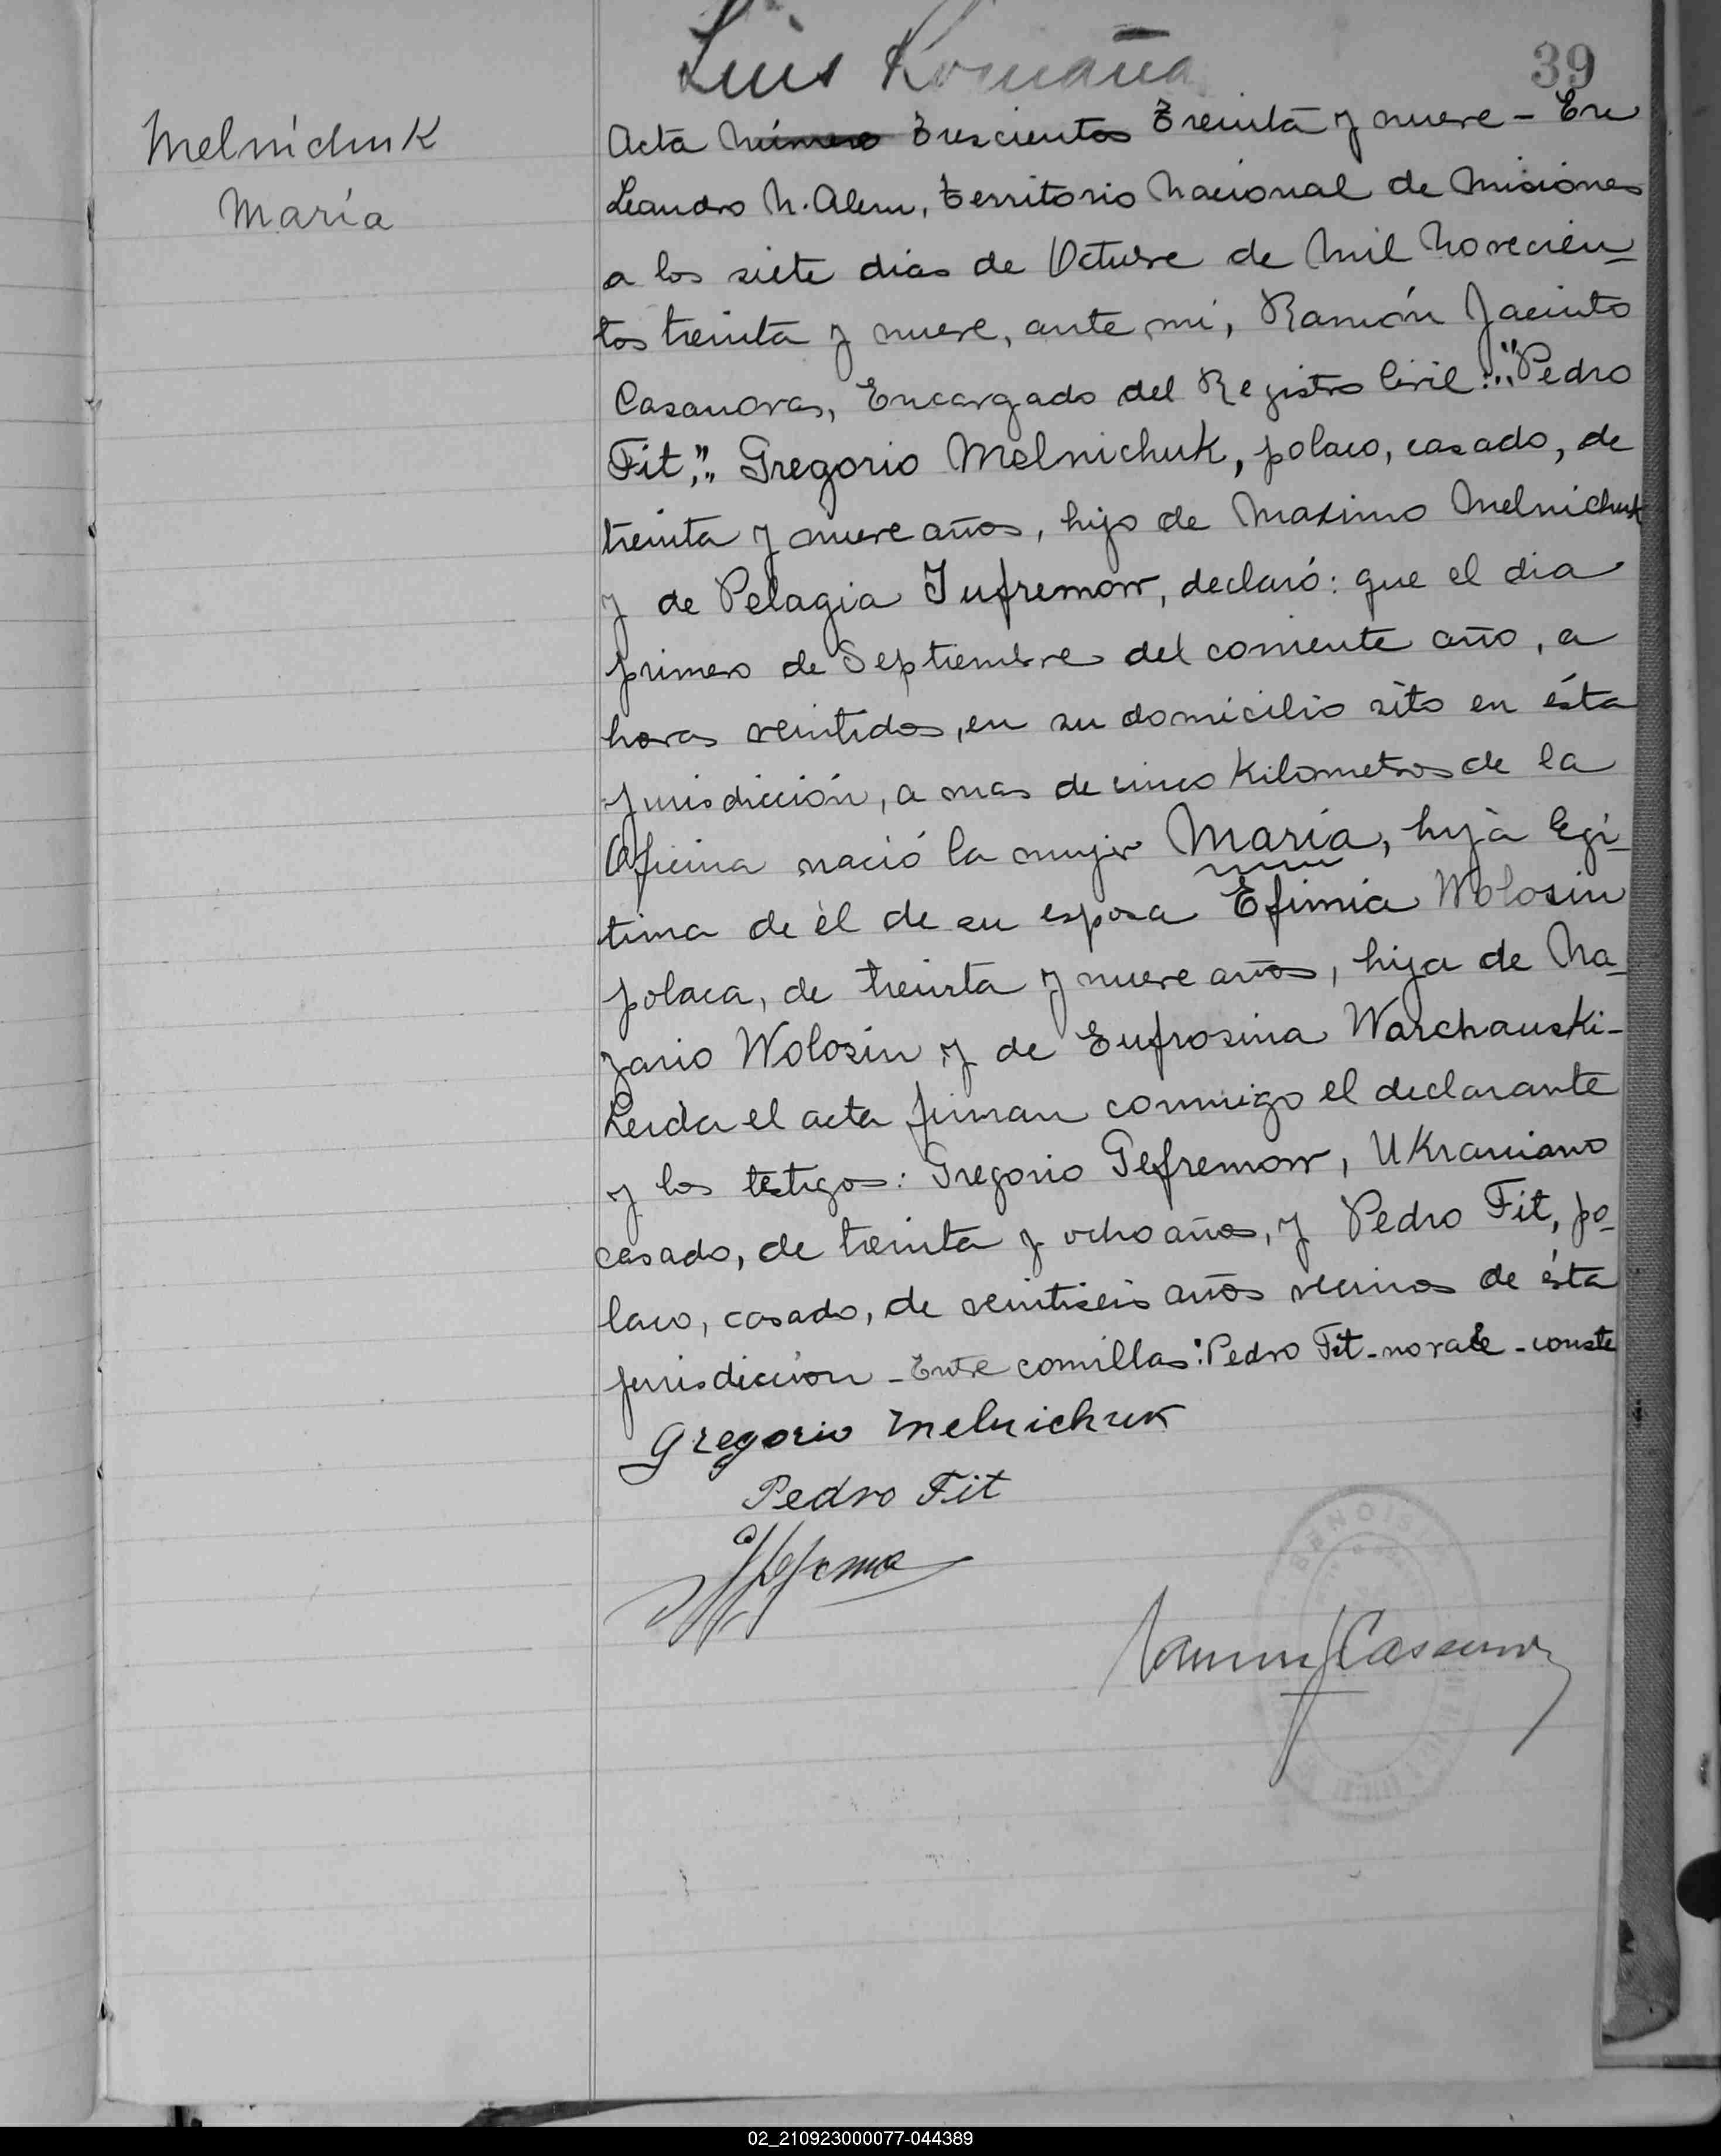 Luis Romaña
39
Melnichuk
María
Acta Número Trescientos Treinta y nueve - En
Leandro N. Alem, Territorio Nacional de Misiones
a los siete dias de Octubre de Mil Novecien-
tos treinta y nueve, ante mi, Ramón Jacinto
Casanovas, Encargado del Registro Civil:.."Pedro
Fit,".. Gregorio Melnichuk, polaco, casado, de
treinta y nueve años, hijo de Maximo Melnichuk
y de Pelagia Iufremow, declaró: que el dia
primero de Septiembre del corriente año, a
horas veintidos, en su domicilio sito en ésta
Jurisdicción, a mas de cinco Kilometros de la
Oficina nació la mujer María, hija legi-
tima de él de su esposa Efimia Wolosin
polaca, de treinta y nueve años, hija de Na-
zario Wolosin y de Eufrosina Warchauski-
Leida el acta firman conmigo el declarante
y los testigos: Gregorio Tefremow, UKraniano
casado, de treinta y ocho años, y Pedro Fit, po-
laco, casado, de veintiseis años vecinos de ésta
jurisdicción - Entre comillas: Pedro Fit - no vale - conste
Gregorio Melnichuk
Pedro Fit
Casanovas
02_210923000077-044389